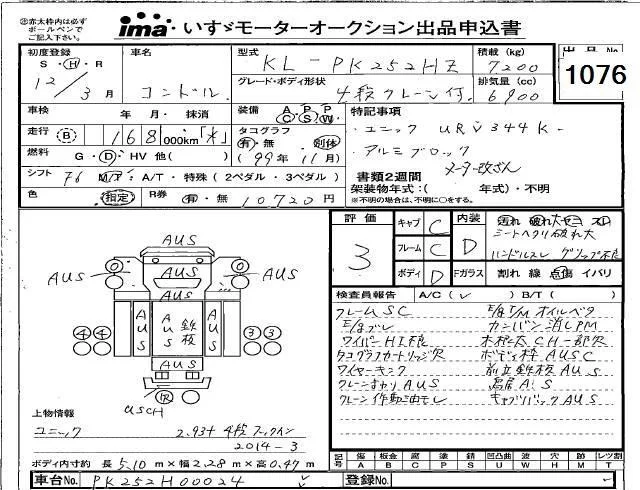 ㊟赤太枠内は必ず
ボールペンで
ご記入下さい。
ima いすゞモーターオークション出品申込書
初度登録 車名 型式 積載(kg) 出品No.
S・H・R KL-PK252HZ 7200 1076
12年3月 コンドル グレード・ボディ形状 排気量(cc)
4段クレーン付 6900
車検 年 月・抹消 装備 A P P 特記事項
C S W
走行 B 168000km「*」 タコグラフ ユニック URV344K
有・無 別体 アルミブロック
燃料 G・D・HV 他( ) (99年11月) メーター改ざん
シフト F6 M/T・A/T・特殊(2ペダル・3ペダル) 書類2週間
架装物年式:( 年式)・不明
色 指定 R券 有・無 10720円 ※不明の場合は、不明に○をする。
評価 3 キャブ C 内装 D 汚れ 破れ大
フレーム C シートヘタリ破れ大
ボディ D Fガラス 割れ 線 点傷 イバリ
ハンドルスレ グリップ不良
AUS
AUS AUS
AUS
AUS AUS 鉄板 AUS
4 4 3 3
AUS
R
USCH
検査員報告 A/C(レ) B/T( )
フレームSC E/g T/M オイルベタ
E/gブレ カンバン消しPM
ワイパーHI不良
タコグラフカートリッジ欠 ボディ枠 AUSC
ワイヤーキンク 前立鉄板AUS
クレーンまわりAUS 鳥居AUS
キャブバックAUS
上物情報
ユニック 2.93t 4段フックイン
2014-3
ボディ内寸約 長5.10m×幅2.28m×高0.47m
記号 傷 板金 補 塗 錆 凹 波 穴 外 レツ割
A B C P S U W H M T
車台No. PK252H00024 登録No.